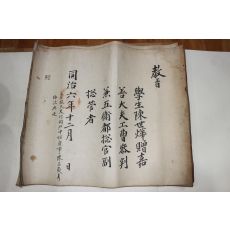 教旨
學生陳世煒贈嘉
善大夫工曹參判
兼五衛都摠府副
摠管者
同治六年十二月 日